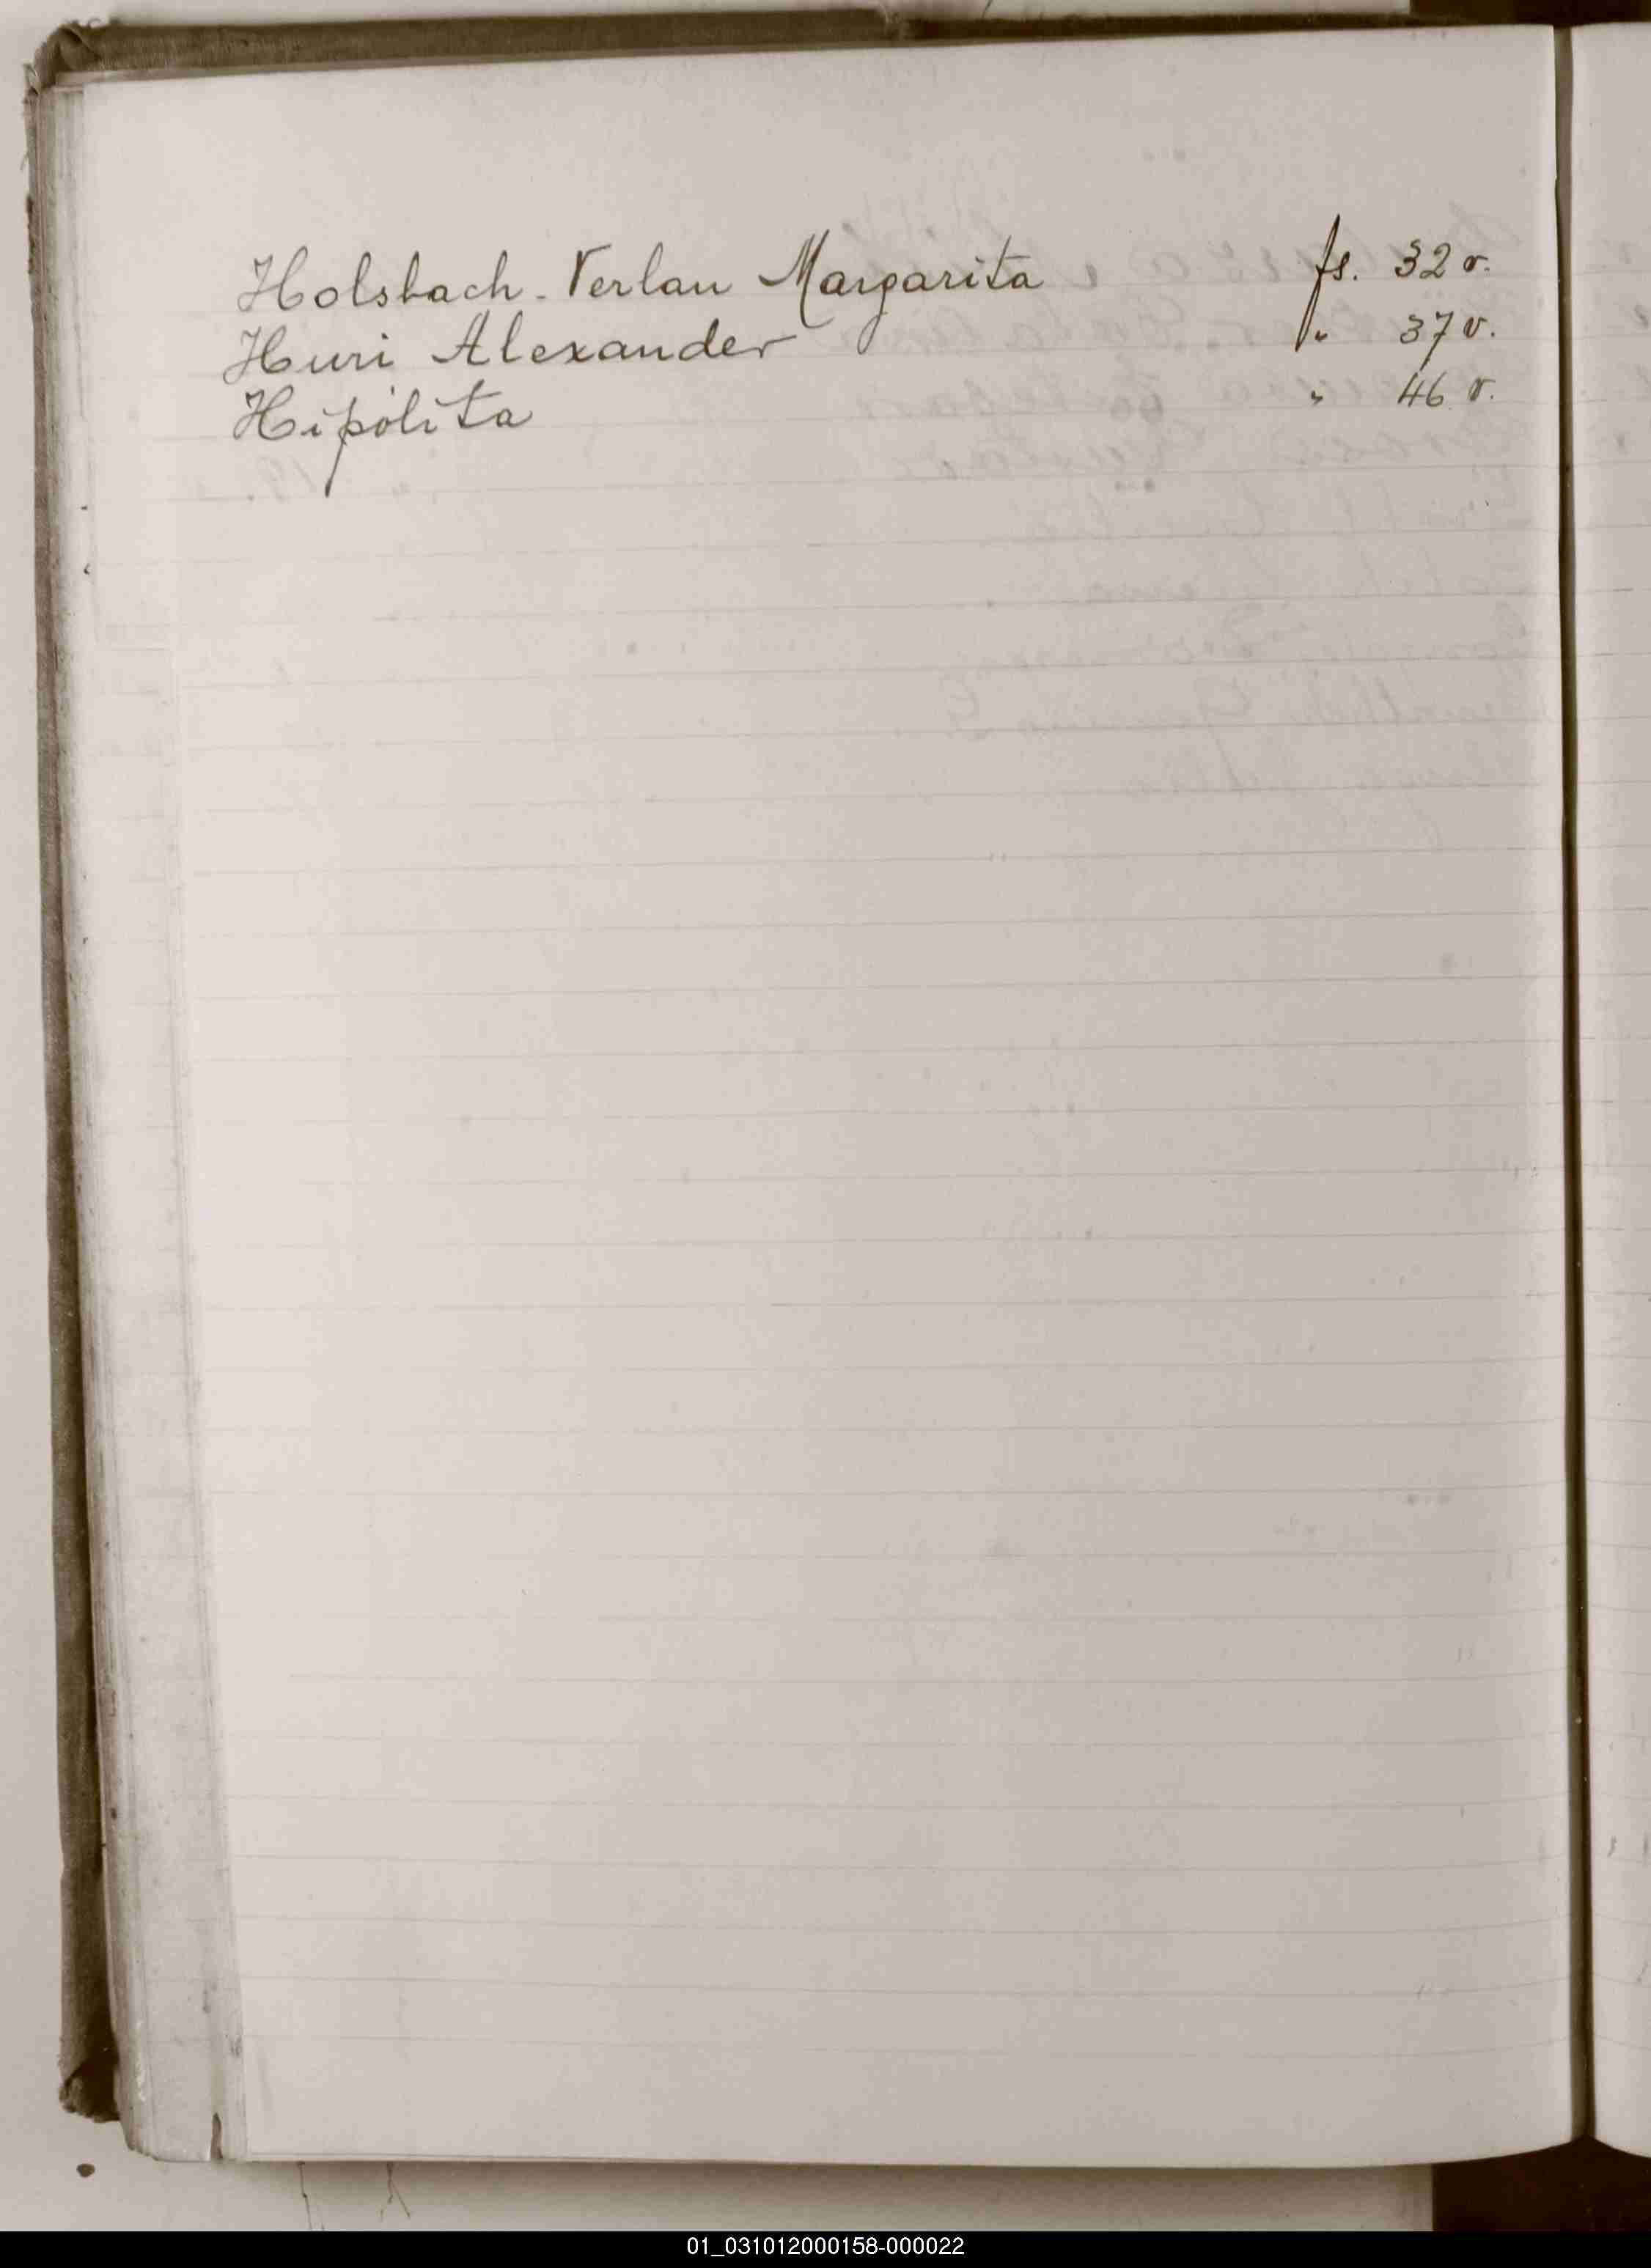 Holsbach-Verlau Margarita fs. 32 v.
Huri Alexander " 37 v.
Hipólita " 46 v.
01_031012000158-000022